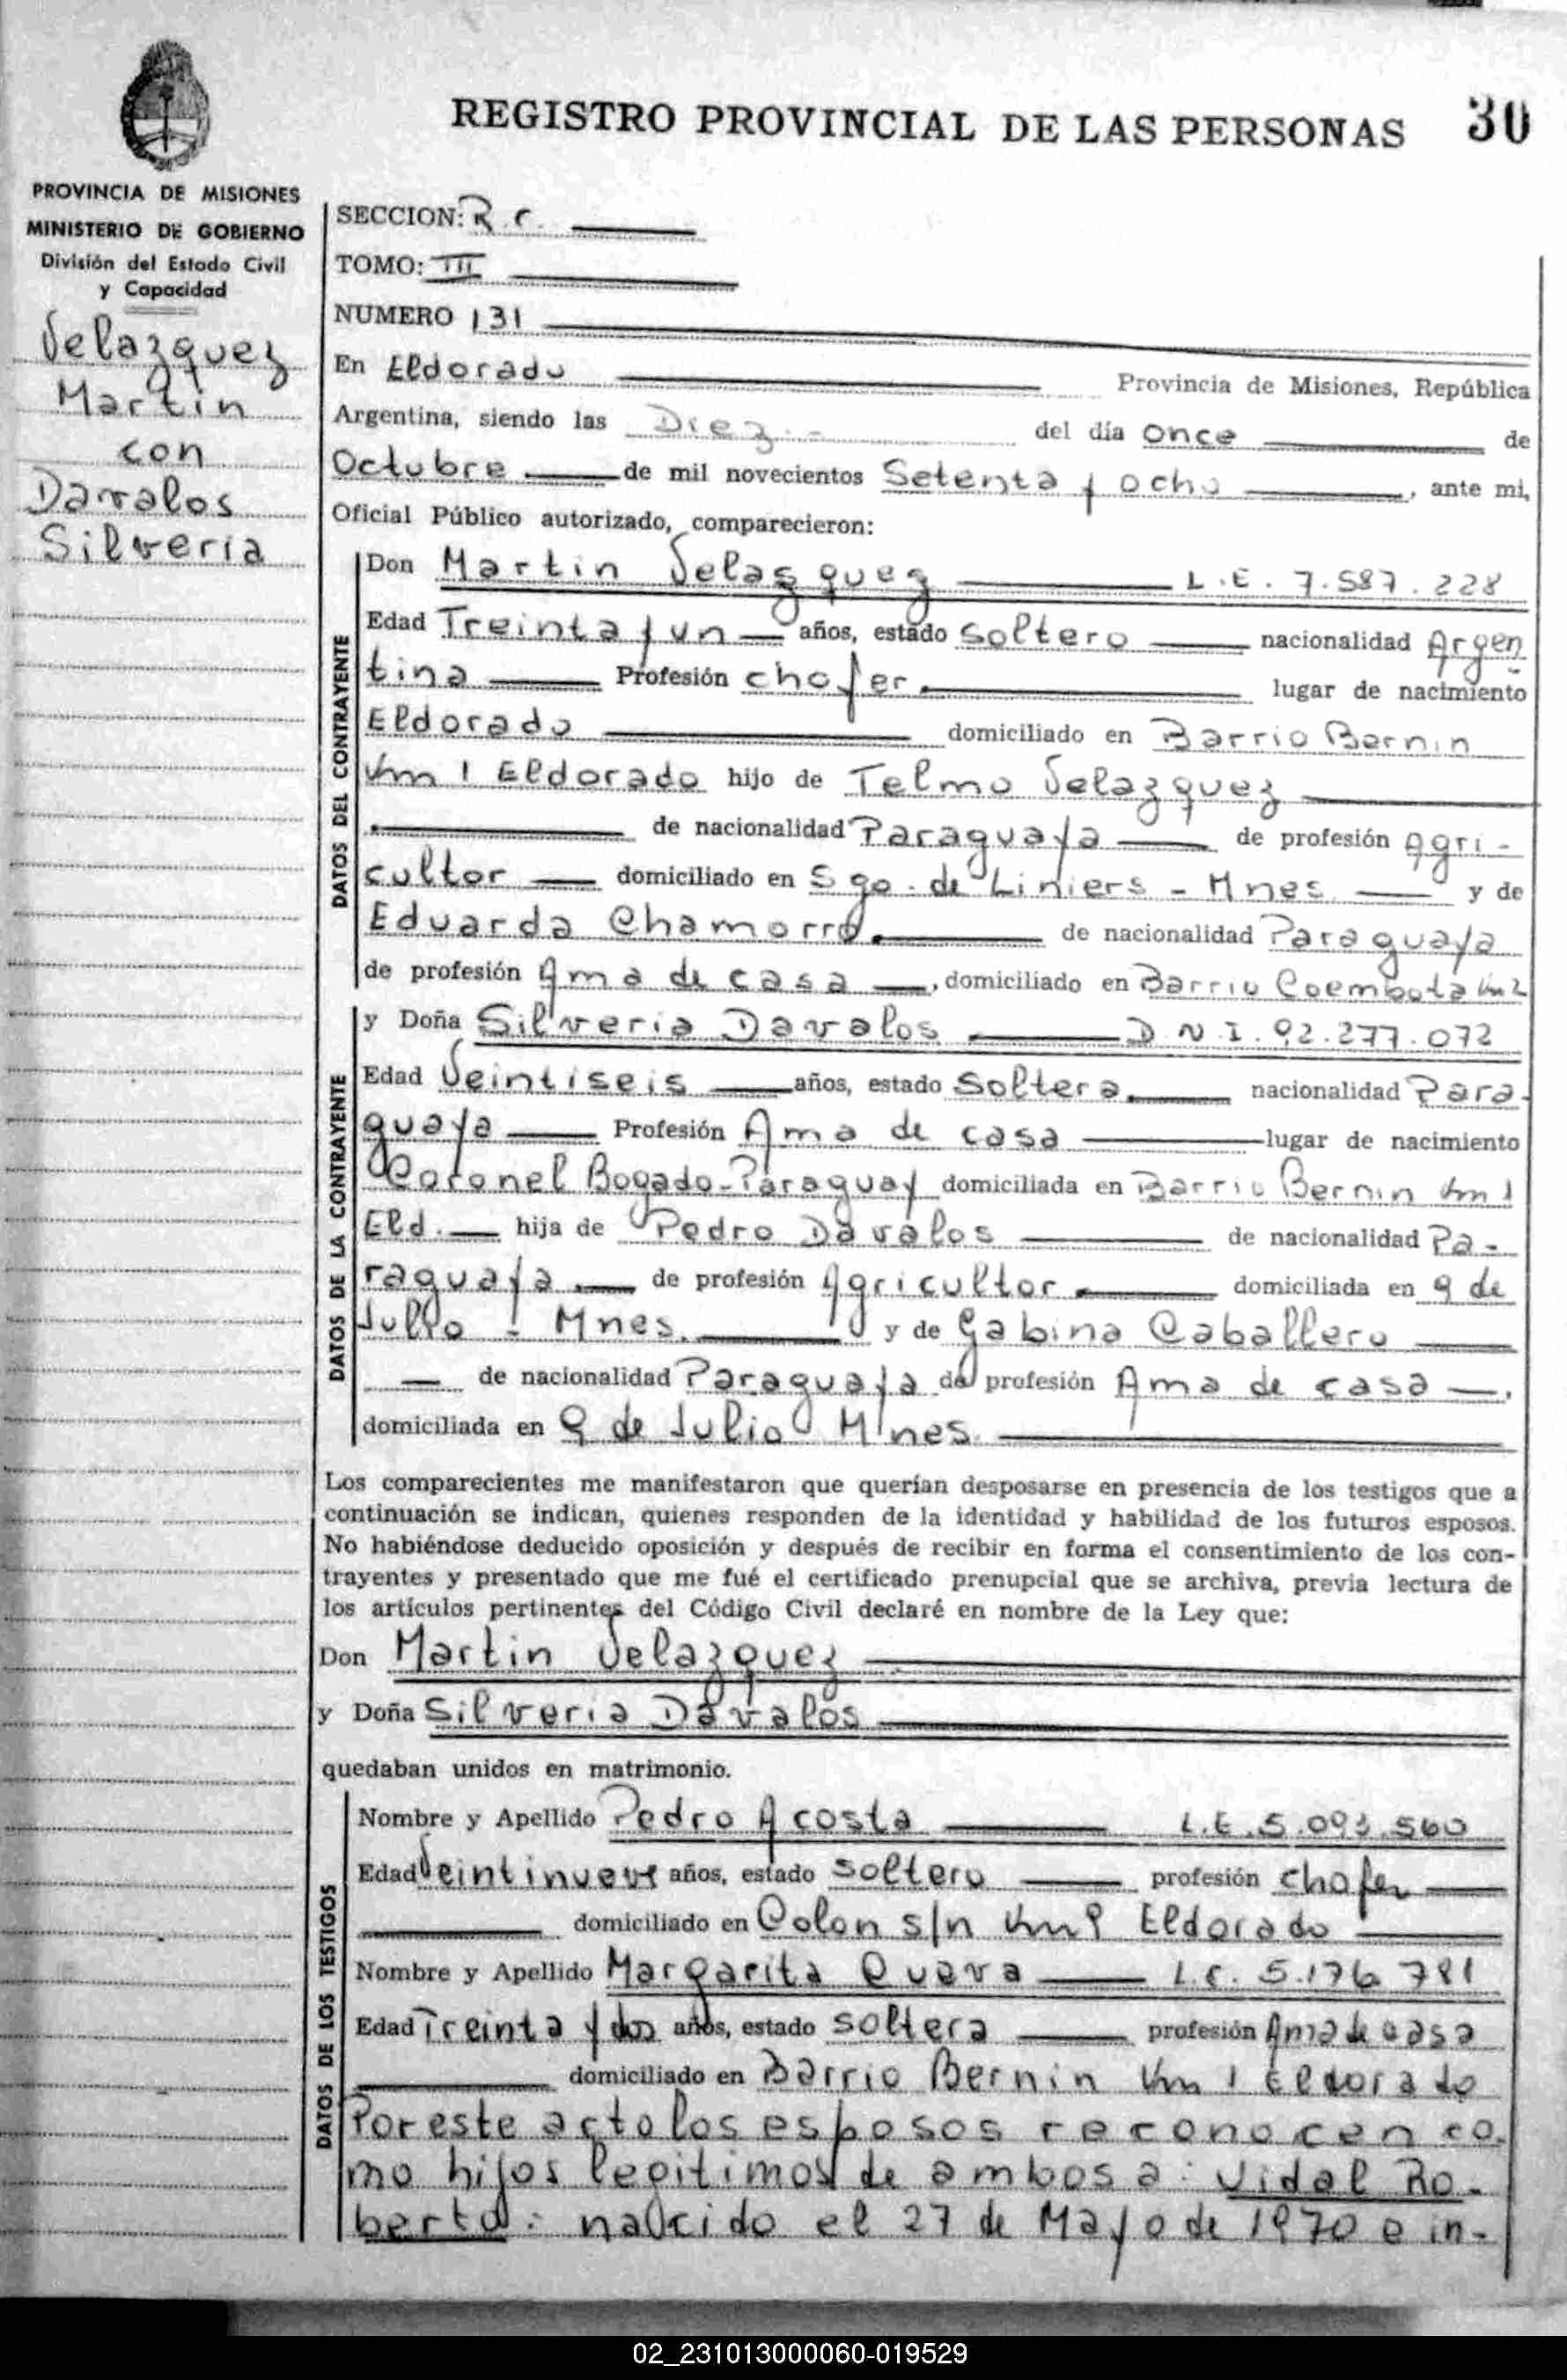 REGISTRO PROVINCIAL DE LAS PERSONAS 30
PROVINCIA DE MISIONES
MINISTERIO DE GOBIERNO
División del Estado Civil
y Capacidad
Velazquez
Martin
con
Davalos
Silveria
SECCION: R.C.
TOMO: III
NUMERO 131
En Eldorado Provincia de Misiones, República
Argentina, siendo las Diez.- del día once de
Octubre de mil novecientos Setenta y ocho, ante mi,
Oficial Público autorizado, comparecieron:
DATOS DEL CONTRAYENTE
Don Martin Velazquez L.E. 7.587.228
Edad Treinta y un años, estado Soltero nacionalidad Argen
tina Profesión chofer. lugar de nacimiento
Eldorado domiciliado en Barrio Bernin
Km 1 Eldorado hijo de Telmo Velazquez
de nacionalidad Paraguaya de profesión Agri-
cultor domiciliado en Sgo. de Liniers - Mnes y de
Eduarda Chamorro. de nacionalidad Paraguaya
de profesión Ama de casa, domiciliado en Barrio Coembota Km 2
DATOS DE LA CONTRAYENTE
y Doña Silveria Davalos D.N.I. 92.277.072
Edad Veintiseis años, estado Soltera. nacionalidad Para-
guaya Profesión Ama de casa lugar de nacimiento
Coronel Bogado-Paraguay domiciliada en Barrio Bernin Km 1
Eld. hija de Pedro Davalos de nacionalidad Pa-
raguaya. de profesión Agricultor. domiciliada en 9 de
Julio - Mnes. y de Gabina Caballero
de nacionalidad Paraguaya de profesión Ama de casa,
domiciliada en 9 de Julio Mnes.
Los comparecientes me manifestaron que querían desposarse en presencia de los testigos que a
continuación se indican, quienes responden de la identidad y habilidad de los futuros esposos.
No habiéndose deducido oposición y después de recibir en forma el consentimiento de los con-
trayentes y presentado que me fué el certificado prenupcial que se archiva, previa lectura de
los artículos pertinentes del Código Civil declaré en nombre de la Ley que:
Don Martin Velazquez
y Doña Silveria Davalos
quedaban unidos en matrimonio.
DATOS DE LOS TESTIGOS
Nombre y Apellido Pedro Acosta L.E. 5.093.560
Edad Veintinueve años, estado Soltero profesión chofer
domiciliado en Colon s/n Km 9 Eldorado
Nombre y Apellido Margarita Cueva L.C. 5.176.781
Edad Treinta y dos años, estado soltera profesión Ama de casa
domiciliado en Barrio Bernin Km 1 Eldorado
Por este acto los esposos reconocen co-
mo hijos legitimos de ambos a: Vidal Ro-
berto: nacido el 27 de Mayo de 1970 e in-
02_231013000060-019529